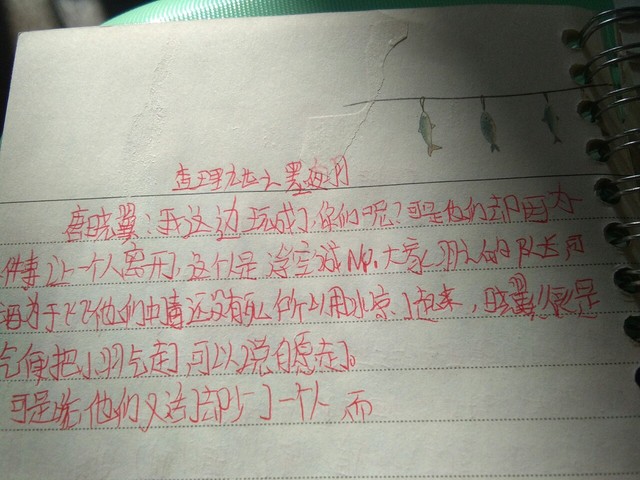 查理九世之墨夜月
唐晓翼:我这边玩成了你们呢?可是他们却因为
件事让一个人离开,这个是浮空城No.大家 羽人的队长可
因为于飞飞他们中情还没有死所以用冰京 起来,晓翼 是
气便把小羽气走了可以说自愿走了。
可是 他们又活 一个人 而